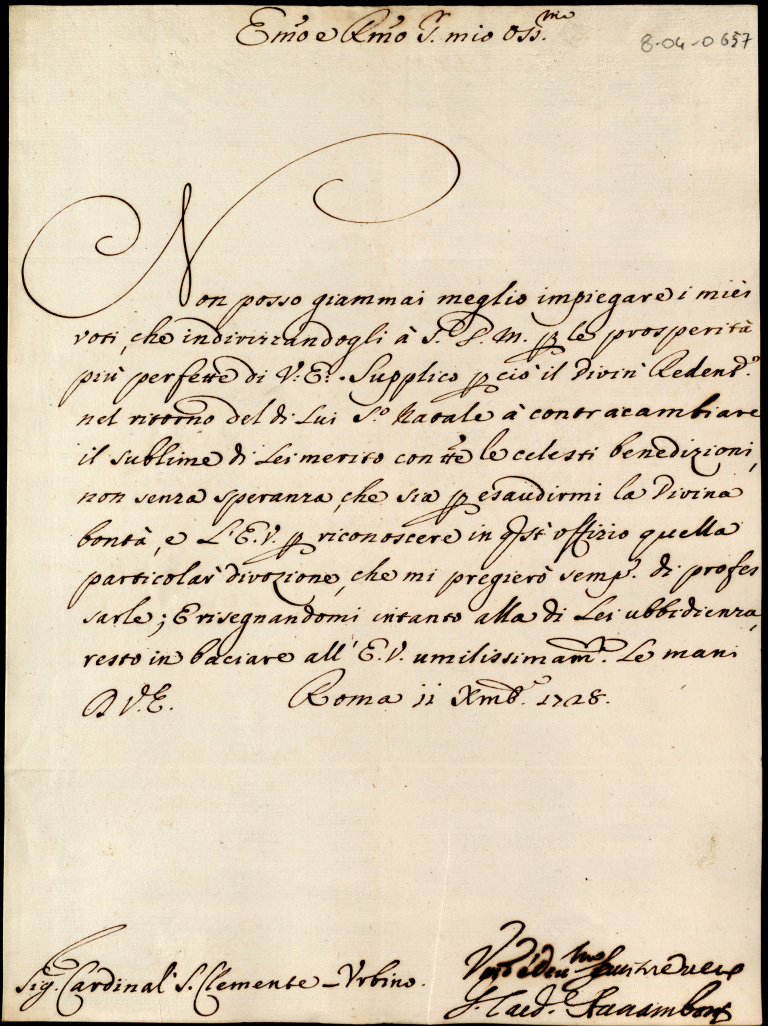 Em̃o e Rm̃o S. mio Oss.mo
8-04-0657
Non posso giammai meglio impiegare i miei
voti, che indirizzandogli à S. D. M. p le prosperità
più perfette di V. E. Supplico p ciò il Divin Redent.e
nel ritorno del di Lui S.o Natale à contracambiare
il sublime di Lei merito con tte le celesti benedizioni,
non senza speranza, che sia p esaudirmi la Divina
bontà, e L'E. V. p riconoscere in qst' offizio quella
particolar divozione, che mi pregierò semp.e di profes
sarle; E risegnandomi intanto alla di Lei ubbidienza,
resto in baciare all' E. V. umilissimam.te Le mani
D V. E. Roma 11 Xmb.e 1728.
Sig. Cardinal S. Clemente - Urbino.